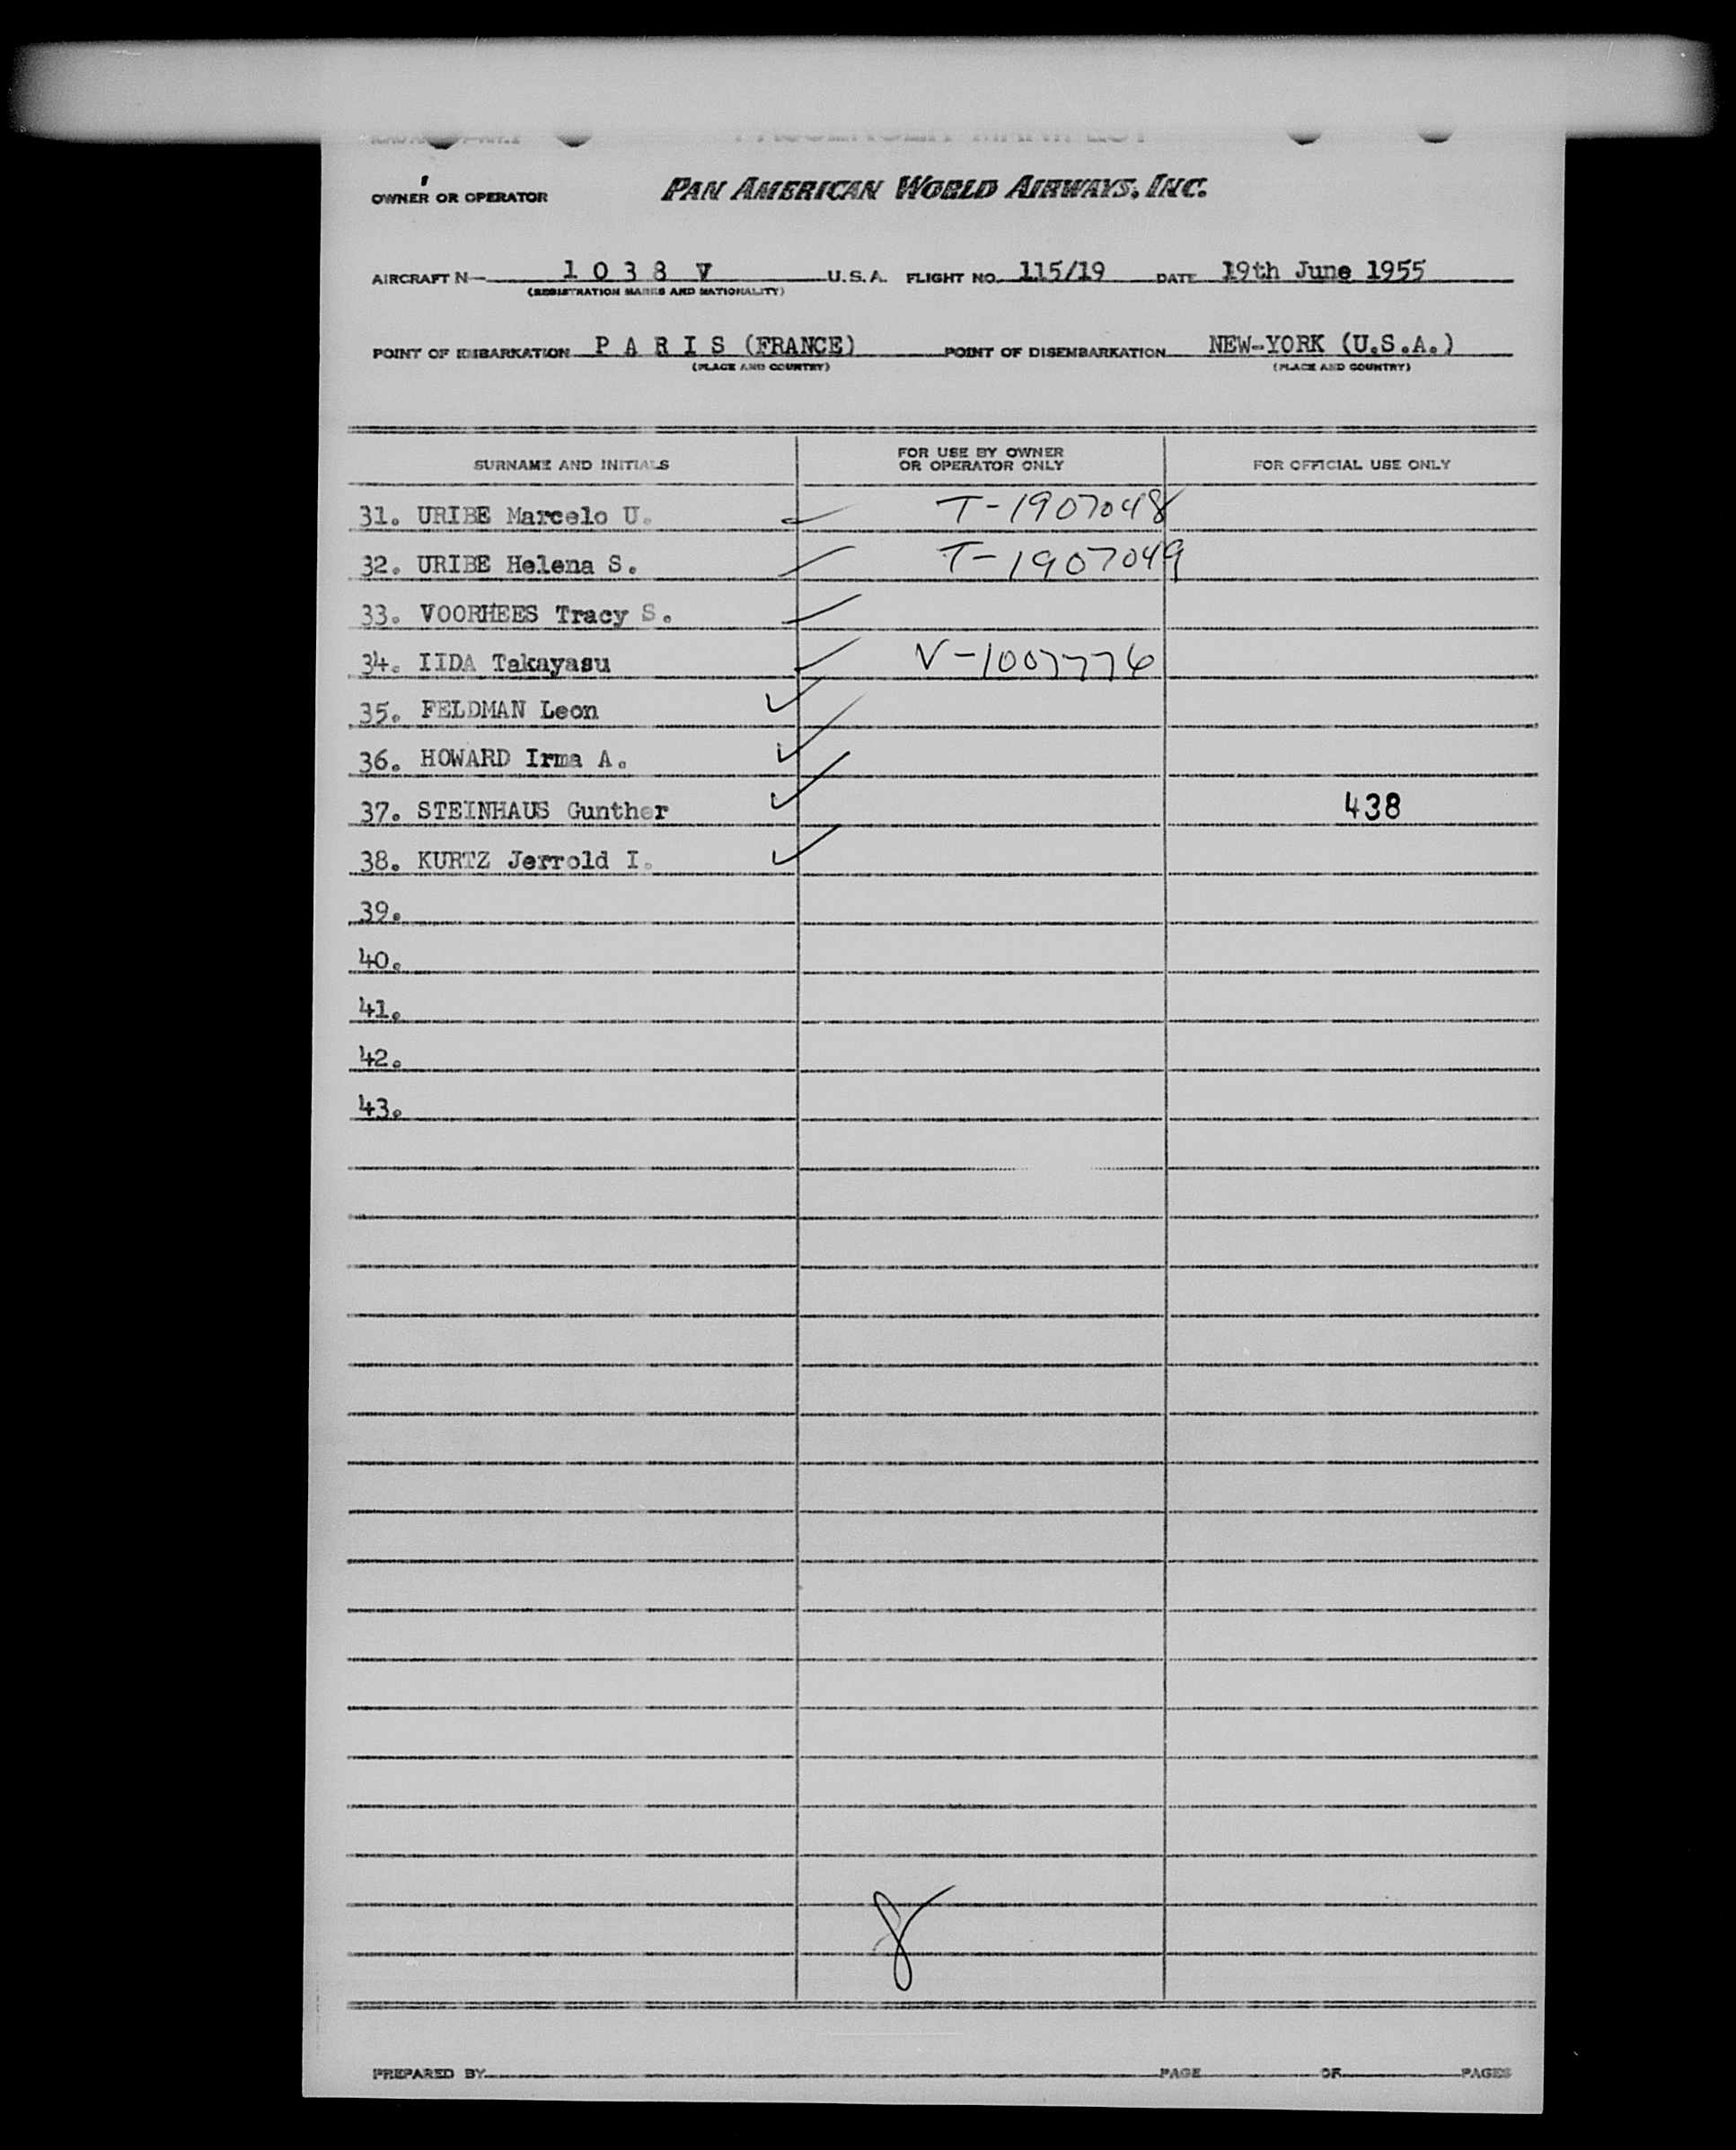 PASSENGER MANIFEST
OWNER OR OPERATOR PAN AMERICAN WORLD AIRWAYS, INC.
AIRCRAFT N 1 0 3 8 V U.S.A. FLIGHT NO. 115/19 DATE 19th June 1955
(REGISTRATION MARKS AND NATIONALITY)
POINT OF EMBARKATION P A R I S (FRANCE) POINT OF DISEMBARKATION NEW-YORK (U.S.A.)
(PLACE AND COUNTRY) (PLACE AND COUNTRY)
SURNAME AND INITIALS FOR USE BY OWNER OR OPERATOR ONLY FOR OFFICIAL USE ONLY
31. URIBE Marcelo U. T-1907048
32. URIBE Helena S. T-1907049
33. VOORHEES Tracy S.
34. IIDA Takayasu V-1007776
35. FELDMAN Leon
36. HOWARD Irma A.
37. STEINHAUS Gunther 438
38. KURTZ Jerrold I.
39.
40.
41.
42.
43.
8
PREPARED BY PAGE OF PAGES